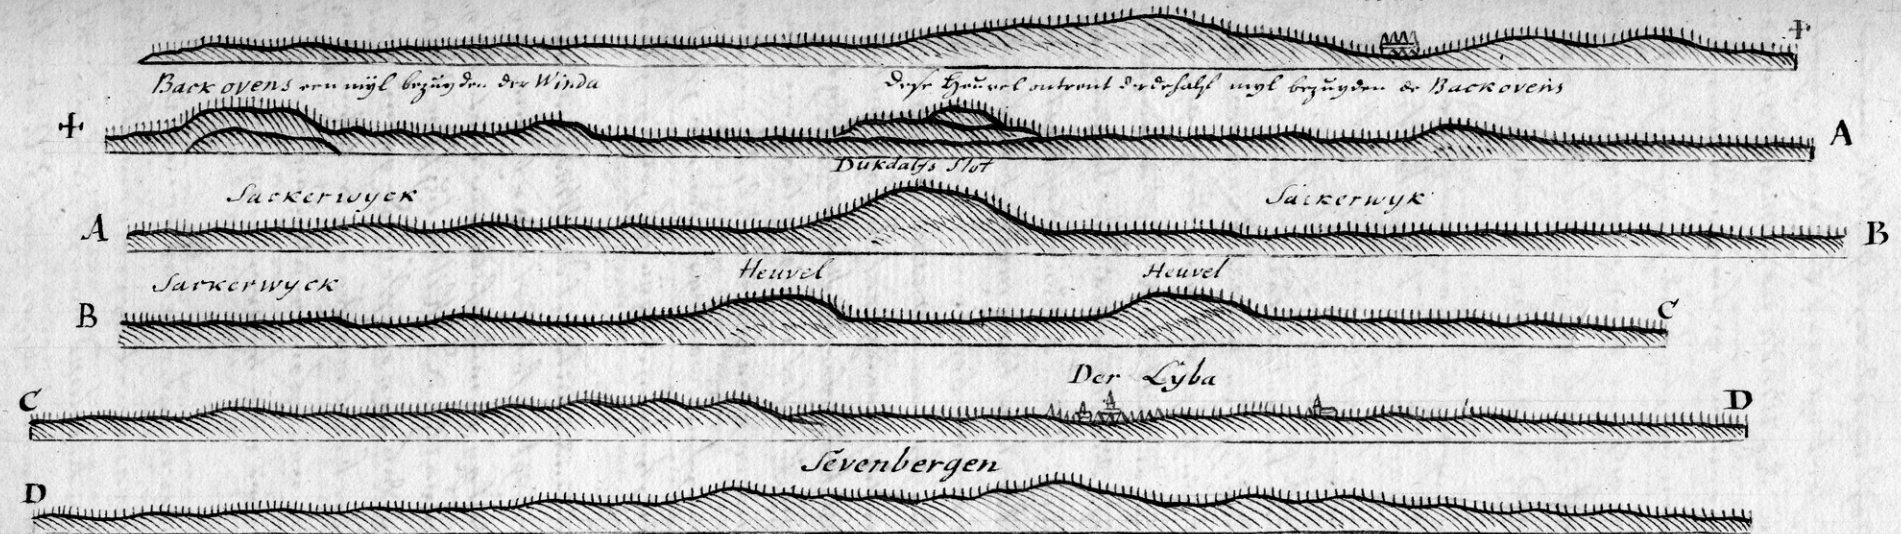 Backovens een myl bezuyden der Winda
Dese Heuvel ontrent derdehalf myl bezuyden de Backovens
A
Dukdalfs Slot
Sackerwyck
Sackerwyk
A
B
Heuvel
Heuvel
Sackerwyck
B
C
Der Lyba
C
D
Sevenbergen
D